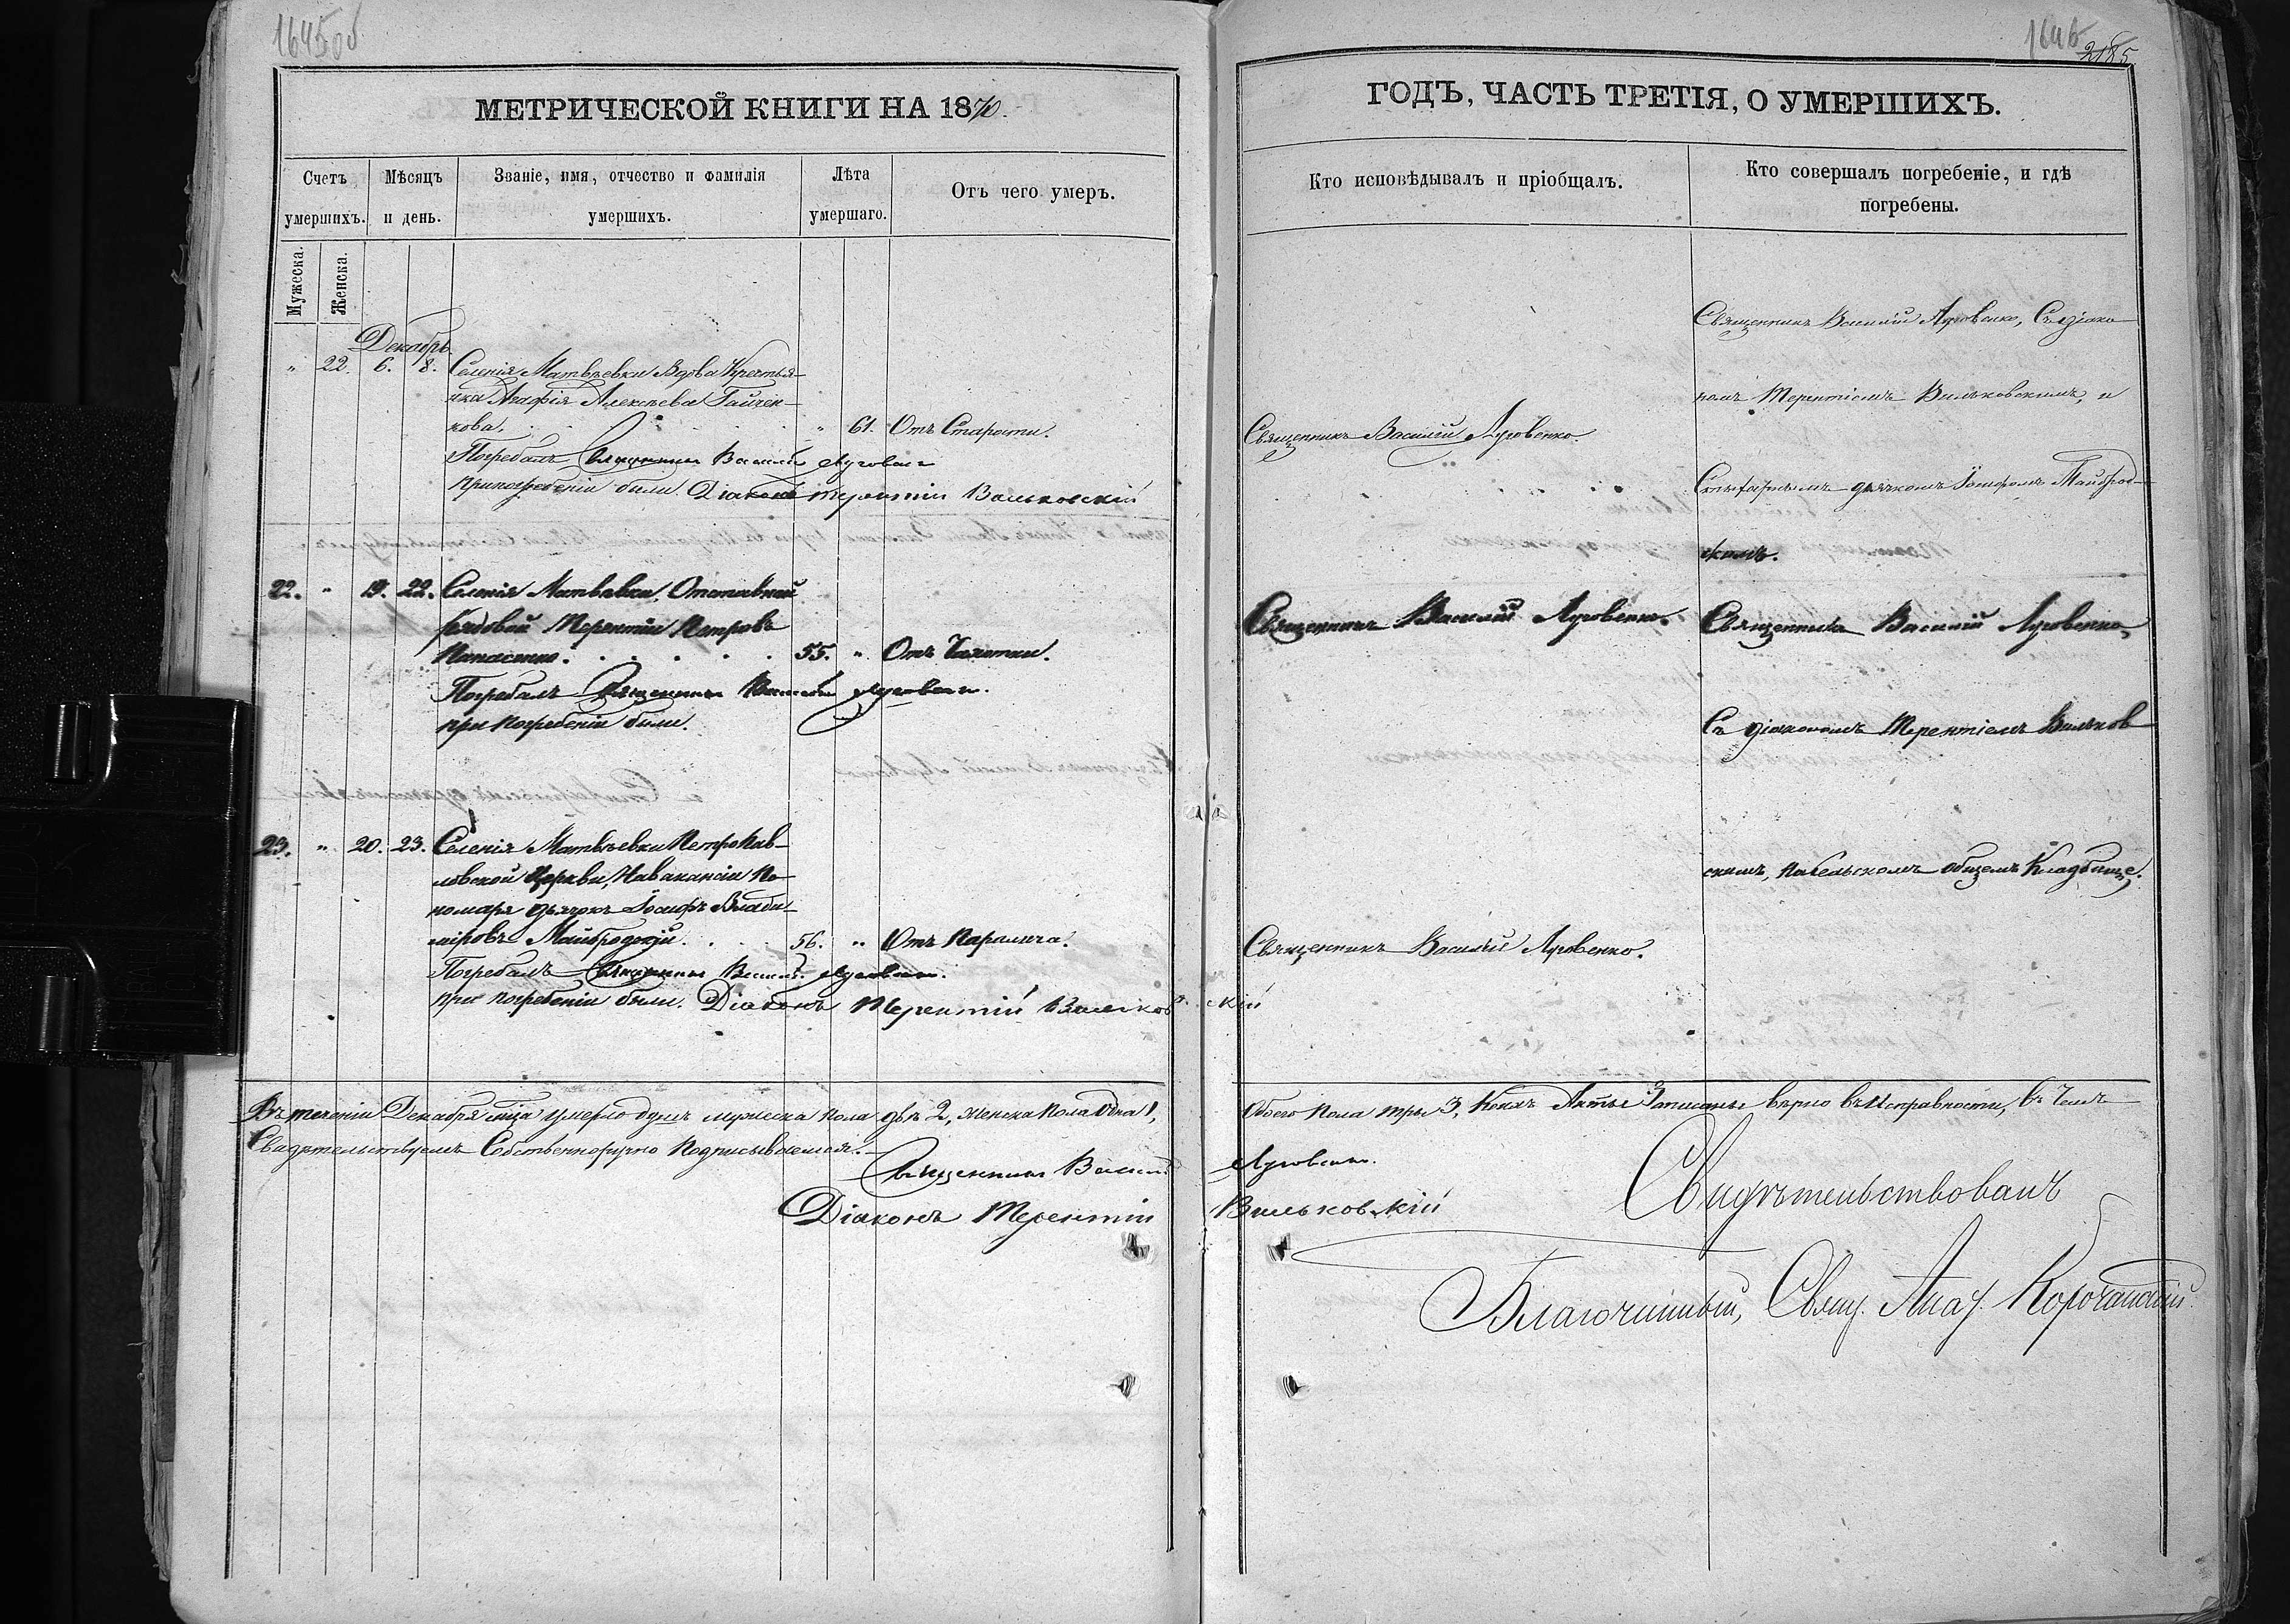 1645об
МЕТРИЧЕСКОЙ КНИГИ НА 1870.
Счетъ умершихъ.
Мѣсяцъ и день.
Званіе, имя, отчество и фамилія умершихъ.
Лѣта умершаго.
Отъ чего умеръ.
Мужеска.
Женска.
Декабрь.
" 22. 6. 8. Селенія Матвѣевки Вдова Крестья-
нка Агафія Алексѣева Гайчен-
кова. " 61. Отъ Старости.
Погребалъ Священникъ Василій Луговенко
При погребеніи были. Діаконъ Терентій Вильковскій
22. " 19. 22. Селенія Матвѣевки, Отставной
рядовой Терентій Петровъ
Панасенко. 55. " Отъ Чахотки.
Погребалъ Священникъ Василій Луговенко.
при погребеніи были.
23. " 20. 23. Селенія Матвѣевки Петропав-
ловской Церкви, На вакансіи По-
номаря дьячокъ Іосифъ Влади-
міровъ Майбродскій. 56. " Отъ Паралича.
Погребалъ Священникъ Василій Луговенко.
при погребеніи были. Діаконъ Терентій Вильковскій
Въ теченіи Декабря м̃ца умерло душъ мужеска пола двѣ 2, женска пола одна 1,
Свидѣтельствуемъ Собственноручно подписываемся.
Священникъ Василій
Діаконъ Терентій
1646
2185
ГОДЪ, ЧАСТЬ ТРЕТІЯ, О УМЕРШИХЪ.
Кто исповѣдывалъ и пріобщалъ.
Кто совершалъ погребеніе, и гдѣ погребены.
Священникъ Василій Луговенко, Съ діако-
номъ Терентіемъ Вильковскимъ, и
Священникъ Василій Луговенко.
дьячкомъ Іосифомъ Майброд-
скимъ.
Священникъ Василій Луговенко. Священникъ Василій Луговенко,
Съ діакономъ Терентіемъ Вильков
скимъ, на сельскомъ общемъ Кладбище.
Священникъ Василій Луговенко.
Обоего пола три 3, Коихъ Акты Записаны вѣрно въ Исправности, въ Чемъ
Луговенко.
Вильковскій
Свидѣтельствовалъ
Благочинный, Свящ. Корочанскій.